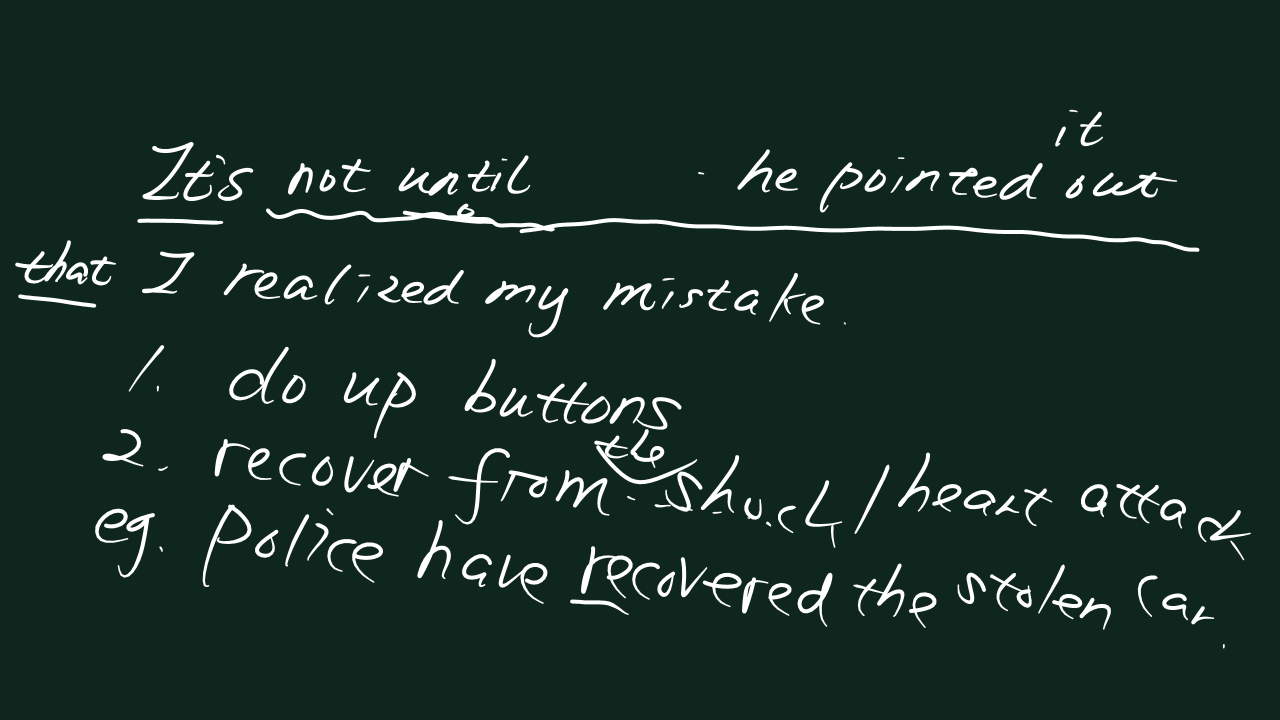 It's not until he pointed it out
that I realized my mistake.
1. do up buttons
2. recover from the shock / heart attack
eg. Police have recovered the stolen car.